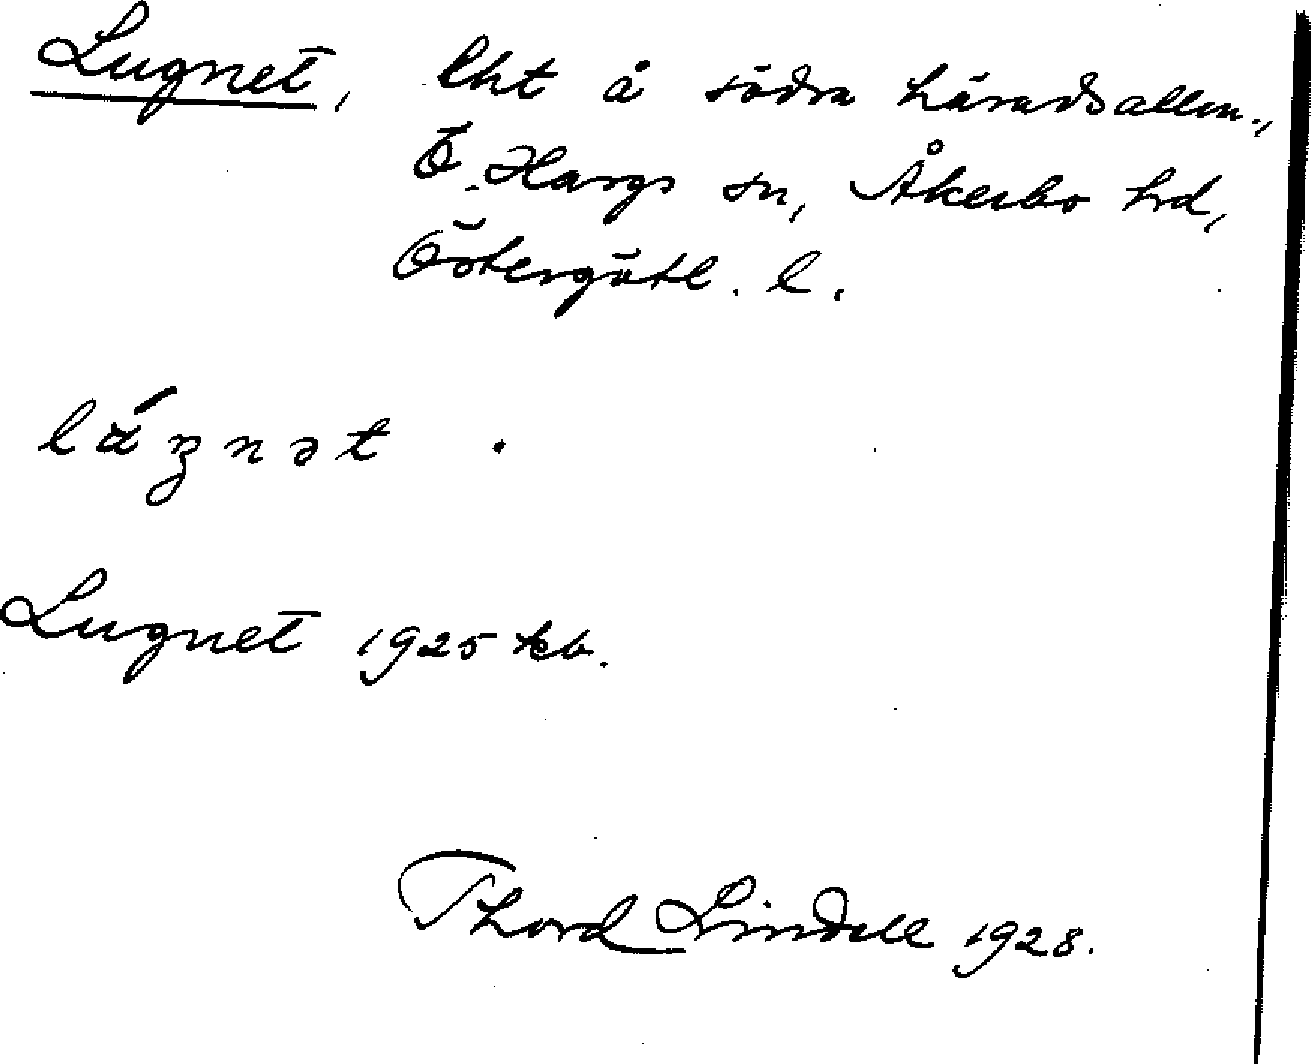 Lugnet, lht å södra häradsallm.,
Ö. Hargs sn, Åkerbo hd,
Östergötl. l.
Lugnet 1925 kb.
Thord Lindell 1928.